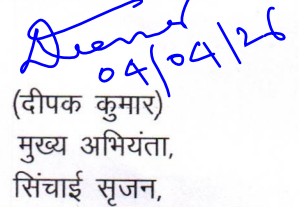 04/04/26
(दीपक कुमार)
मुख्य अभियंता,
सिंचाई सृजन,